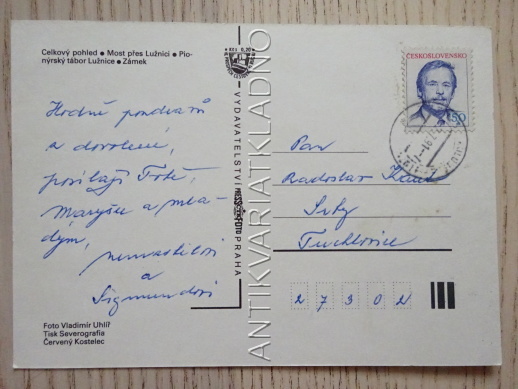 Celkový pohled • Most přes Lužnici • Pio-
nýrský tábor Lužnice • Zámek
Hodně pozdravů
z dovolené,
posílají
a mla-
dým,
a
Zigmundovi
Foto Vladimír Uhlíř
Tisk Severografia
Červený Kostelec
VYDAVATELSTVÍ PRESSFOTO PRAHA
ANTIKVARIATKLADNO
ČESKOSLOVENSKO
50
Pan
Radoslav
Srby
Tuchlovice
27302